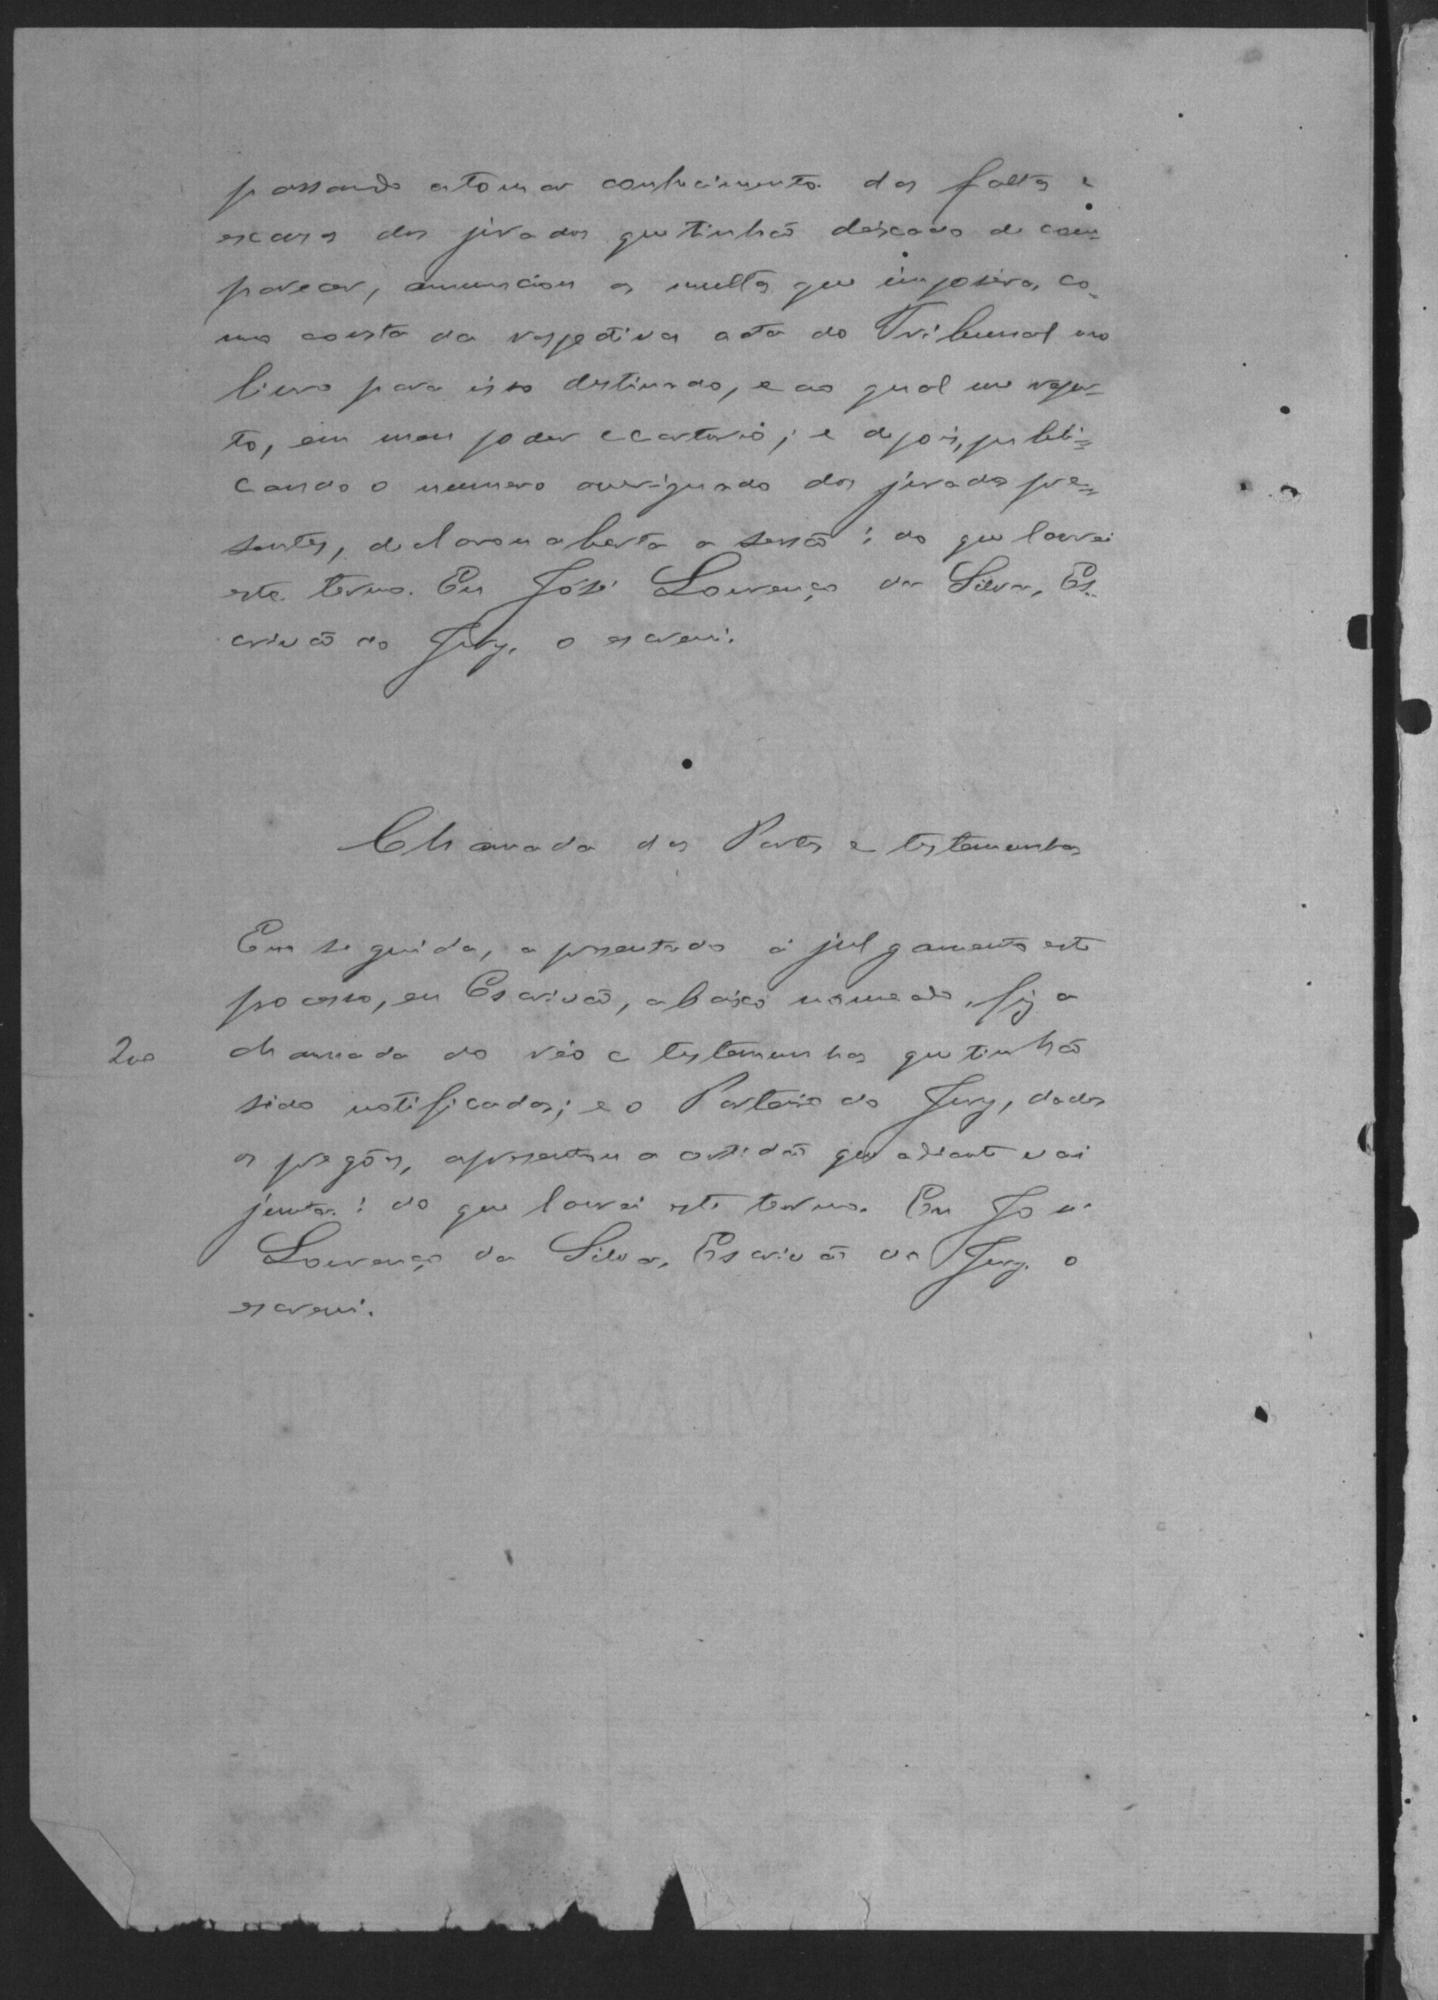 passando a tomar conhecimento das faltas e
escusas dos jurados que tinhão deixado de com=
parecer, annunciou as multas que impusera, co-
mo consta da respectiva acta do Tribunal no
livro para isso destinado, e ao qual me repor=
to, em meu poder e cartorio; e depois, publi=
cando o numero averiguado dos jurados pre=
sentes, declarou aberta a sessão: do que lavrei
este termo. Eu José Lourenço da Silva, Es-
crivão do Jury, o escrevi.
Chamada das Partes e testemunhas
Em seguida, apresentado á julgamento este
processo, eu Escrivão, abaixo nomeado, fiz a
200
chamada do réo e testemunhas que tinhão
sido notificadas; e o Porteiro do Jury, dados
os pregões, apresentou a certidão que adiante vai
junta: do que lavrei este termo. Eu José
Lourenço da Silva, Escrivão do Jury, o
escrevi.